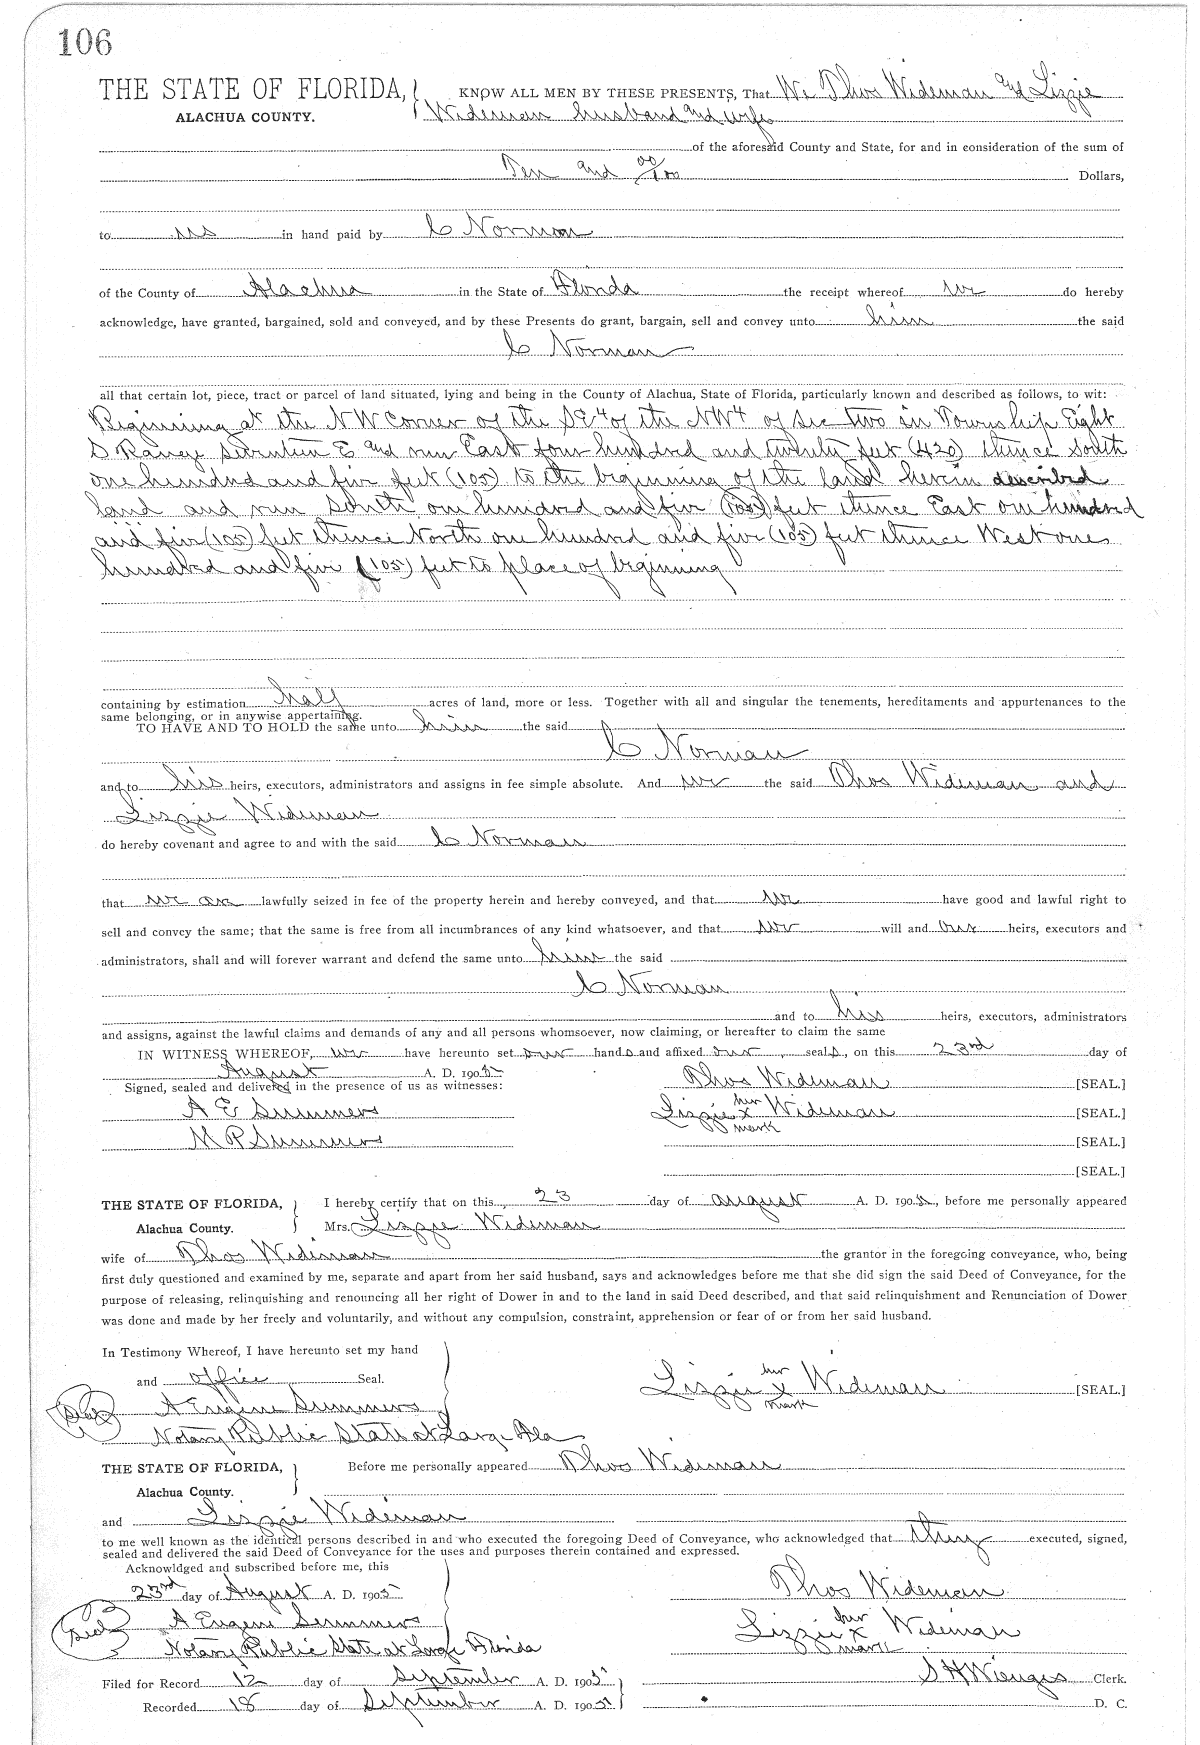 106
THE STATE OF FLORIDA, KNOW ALL MEN BY THESE PRESENTS, That We Thos Wideman and Lizzie
ALACHUA COUNTY. Wideman husband and wife
of the aforesaid County and State, for and in consideration of the sum of
Ten and 00/100 Dollars,
to us in hand paid by C Norman
of the County of Alachua in the State of Florida the receipt whereof we do hereby
acknowledge, have granted, bargained, sold and conveyed, and by these Presents do grant, bargain, sell and convey unto him the said
C Norman
all that certain lot, piece, tract or parcel of land situated, lying and being in the County of Alachua, State of Florida, particularly known and described as follows, to wit:
Beginning at the NW Corner of the SE 4 of the NW 4 of Sec two in Township Eight
S Range Seventeen E and run East four hundred and twenty feet (420) thence South
one hundred and five feet (105) to the beginning of the land herein described
land and run South one hundred and five (105) feet thence East one hundred
and five (105) feet thence North one hundred and five (105) feet thence West one
hundred and five (105) feet to place of beginning
containing by estimation half acres of land, more or less. Together with all and singular the tenements, hereditaments and appurtenances to the
same belonging, or in anywise appertaining.
TO HAVE AND TO HOLD the same unto him the said
C Norman
and to his heirs, executors, administrators and assigns in fee simple absolute. And we the said Thos Wideman and
Lizzie Wideman
do hereby covenant and agree to and with the said C Norman
that we are lawfully seized in fee of the property herein and hereby conveyed, and that we have good and lawful right to
sell and convey the same; that the same is free from all incumbrances of any kind whatsoever, and that we will and our heirs, executors and
administrators, shall and will forever warrant and defend the same unto him the said
C Norman
and to his heirs, executors, administrators
and assigns, against the lawful claims and demands of any and all persons whomsoever, now claiming, or hereafter to claim the same
IN WITNESS WHEREOF, we have hereunto set our hands and affixed our seals, on this 23rd day of
August A. D. 1905
Signed, sealed and delivered in the presence of us as witnesses: Thos Wideman [SEAL.]
A E Summers Lizzie her x mark Wideman [SEAL.]
M P Summers [SEAL.]
[SEAL.]
THE STATE OF FLORIDA, I hereby certify that on this 23 day of August A. D. 1905, before me personally appeared
Alachua County. Mrs. Lizzie Wideman
wife of Thos Wideman the grantor in the foregoing conveyance, who, being
first duly questioned and examined by me, separate and apart from her said husband, says and acknowledges before me that she did sign the said Deed of Conveyance, for the
purpose of releasing, relinquishing and renouncing all her right of Dower in and to the land in said Deed described, and that said relinquishment and Renunciation of Dower
was done and made by her freely and voluntarily, and without any compulsion, constraint, apprehension or fear of or from her said husband.
In Testimony Whereof, I have hereunto set my hand
and office Seal. Lizzie her x mark Wideman [SEAL.]
Seal A Eugene Summers
Notary Public State at Large Fla
THE STATE OF FLORIDA, Before me personally appeared Thos Wideman
Alachua County.
and Lizzie Wideman
to me well known as the identical persons described in and who executed the foregoing Deed of Conveyance, who acknowledged that they executed, signed,
sealed and delivered the said Deed of Conveyance for the uses and purposes therein contained and expressed.
Acknowldged and subscribed before me, this
23rd day of August A. D. 1905 Thos Wideman
Seal A Eugene Summers Lizzie her x mark Wideman
Notary Public State at Large Florida
Filed for Record 12 day of September A. D. 1905 S H Wienges Clerk.
Recorded 18 day of September A. D. 1905 D. C.